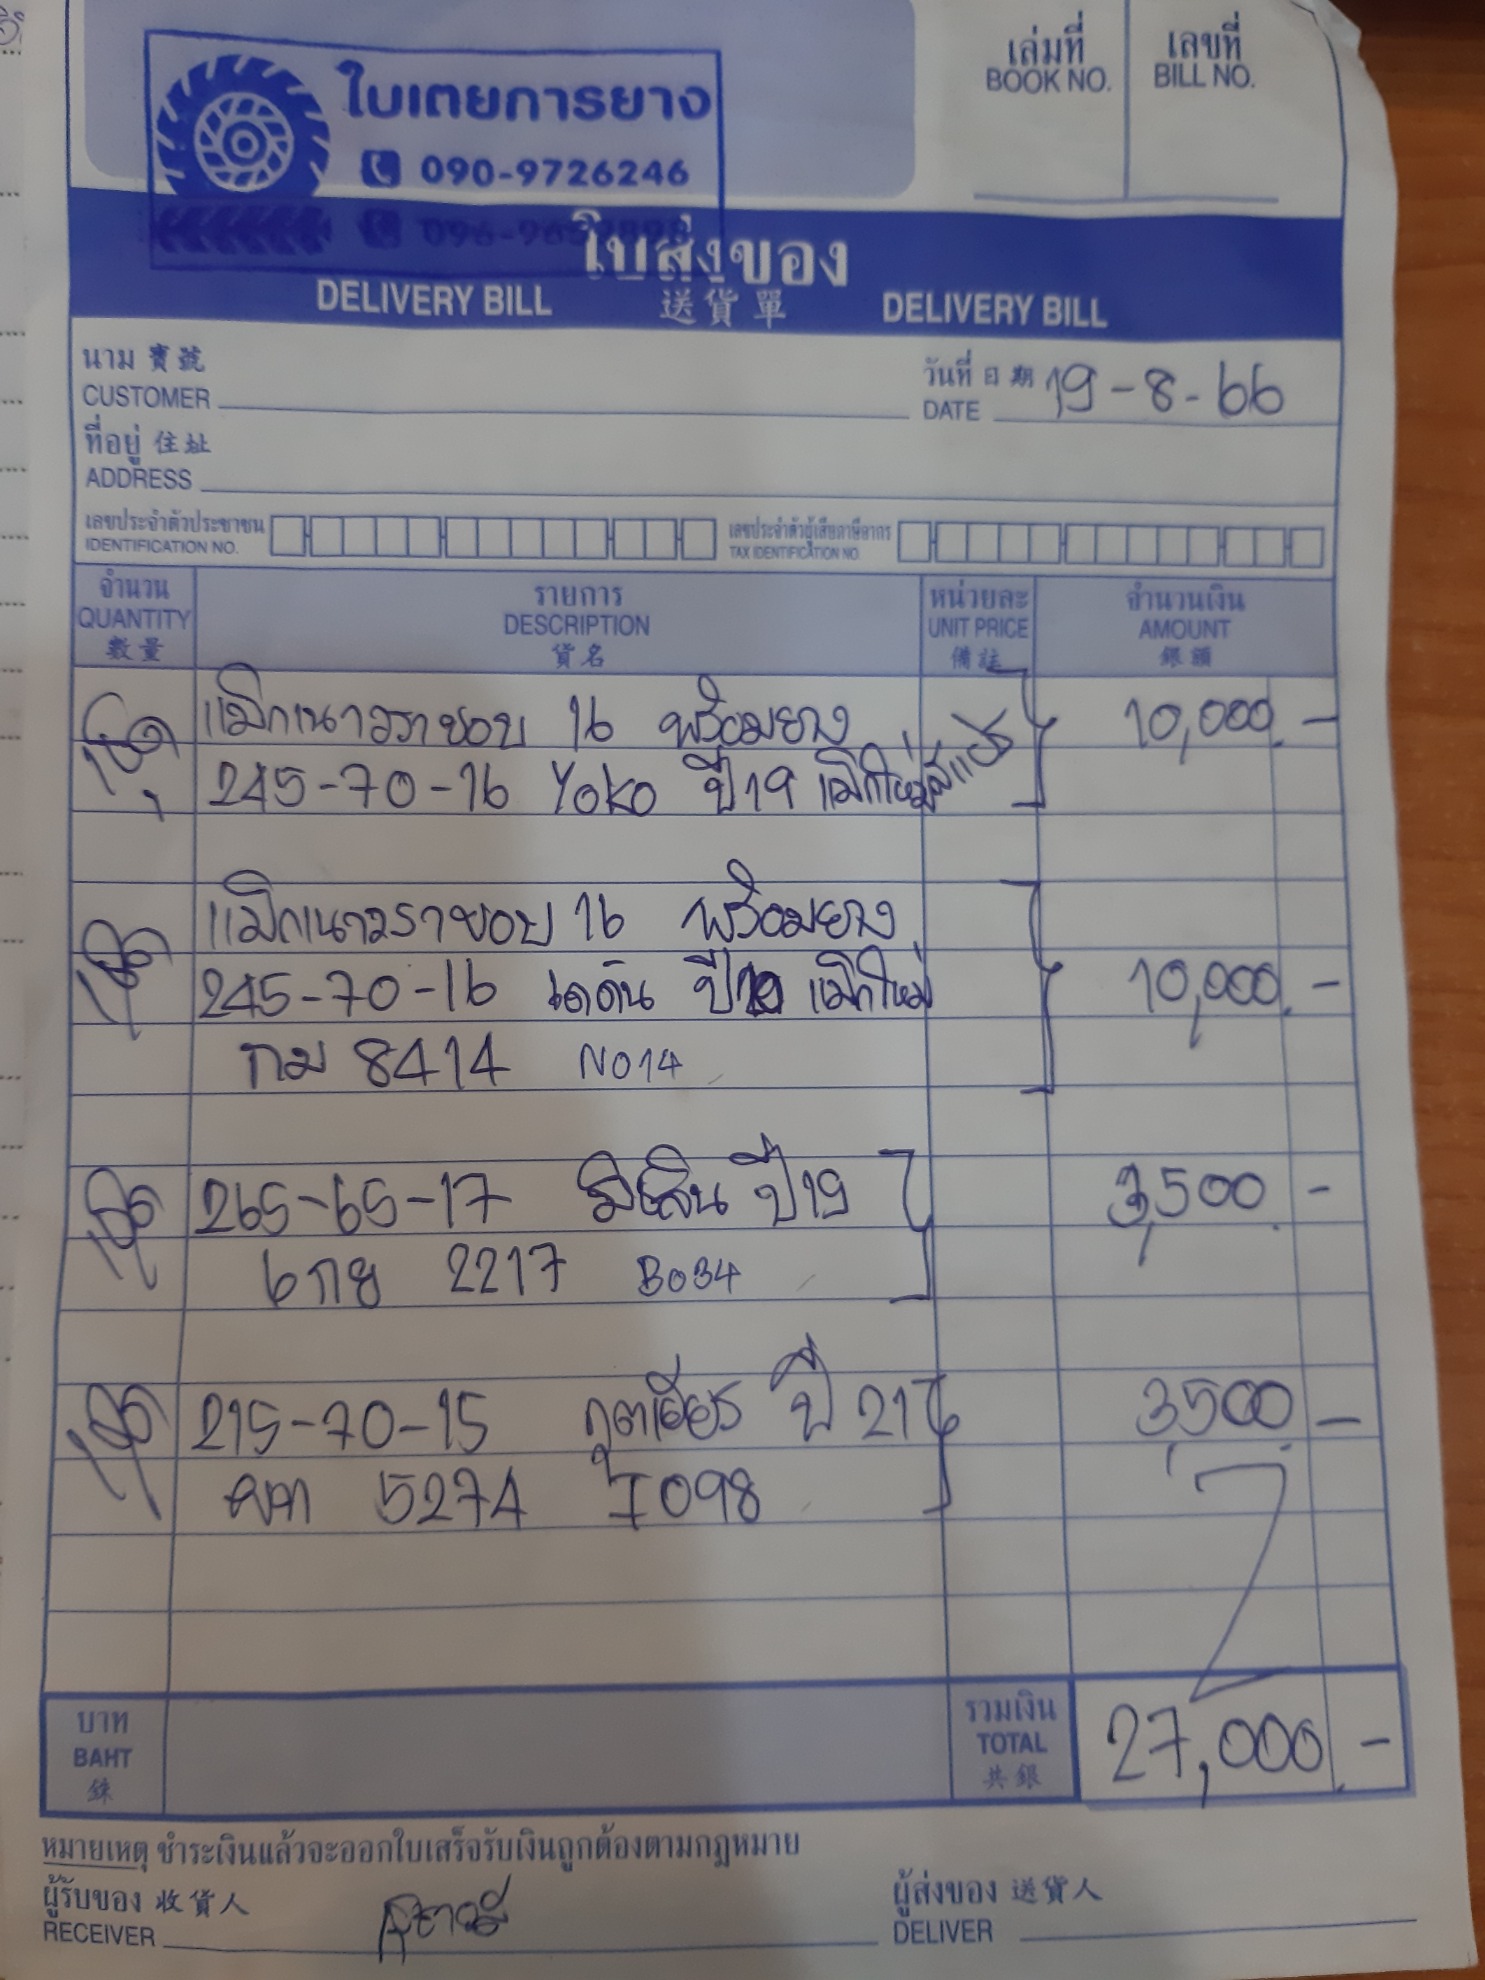 เล่มที่ เลขที่
BOOK NO. BILL NO.
ใบเตยการยาง
090-9726246
ใบส่งของ
DELIVERY BILL 送貨單 DELIVERY BILL
นาม 寶號 วันที่ 日期 19-8-66
CUSTOMER DATE
ที่อยู่ 住址
ADDRESS
เลขประจำตัวประชาชน เลขประจำตัวผู้เสียภาษีอากร
IDENTIFICATION NO. TAX IDENTIFICATION NO.
จำนวน รายการ หน่วยละ จำนวนเงิน
QUANTITY DESCRIPTION UNIT PRICE AMOUNT
數量 貨名 備註 銀額
แม็กนาวาราขอบ 16 พร้อมยาง 10,000.-
245-70-16 Yoko ปี 19 แม็กใหม่
แม็กนาวาราขอบ 16 พร้อมยาง
245-70-16 แม็กใหม่ 10,000.-
กม 8414 N014
265-65-17 มิชลิน ปี 19 3,500.-
6กย 2217 B034
215-70-15 กูดเยียร ปี 21 3500.-
5274 I098
บาท รวมเงิน
BAHT TOTAL 27,000.-
銖 共銀
หมายเหตุ ชำระเงินแล้วจะออกใบเสร็จรับเงินถูกต้องตามกฎหมาย
ผู้รับของ 收貨人 ผู้ส่งของ 送貨人
RECEIVER DELIVER